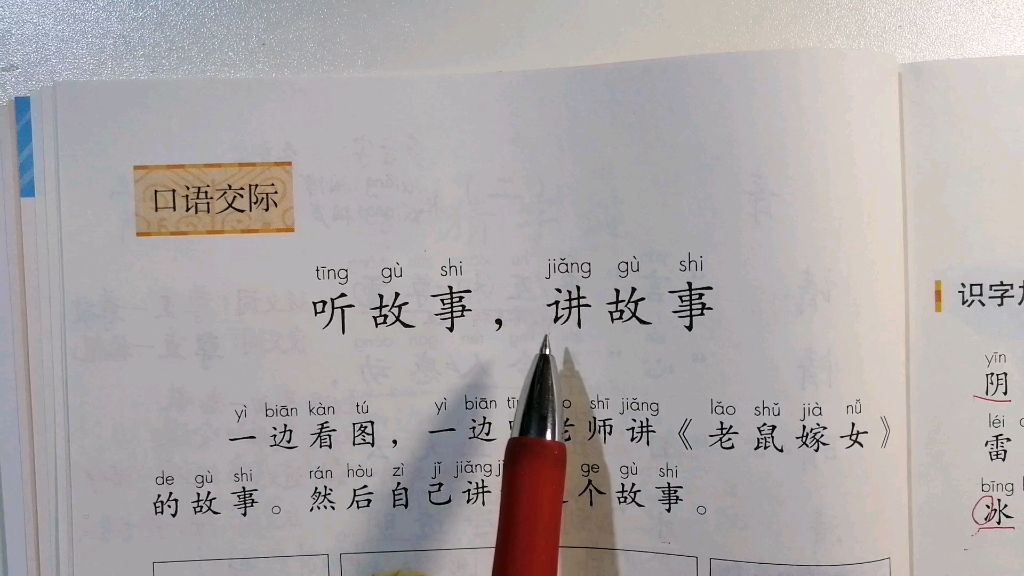 口语交际
tīng gù shi jiǎng gù shi
听故事，讲故事
yì biān kàn tú yì biān shī jiǎng lǎo shǔ jià nǚ
一边看图，一边 老师讲《老鼠嫁女》
de gù shi rán hòu zì jǐ jiǎng ge gù shi
的故事。然后自己讲 个故事。
识字
yīn
阴
léi
雷
bīng
冰